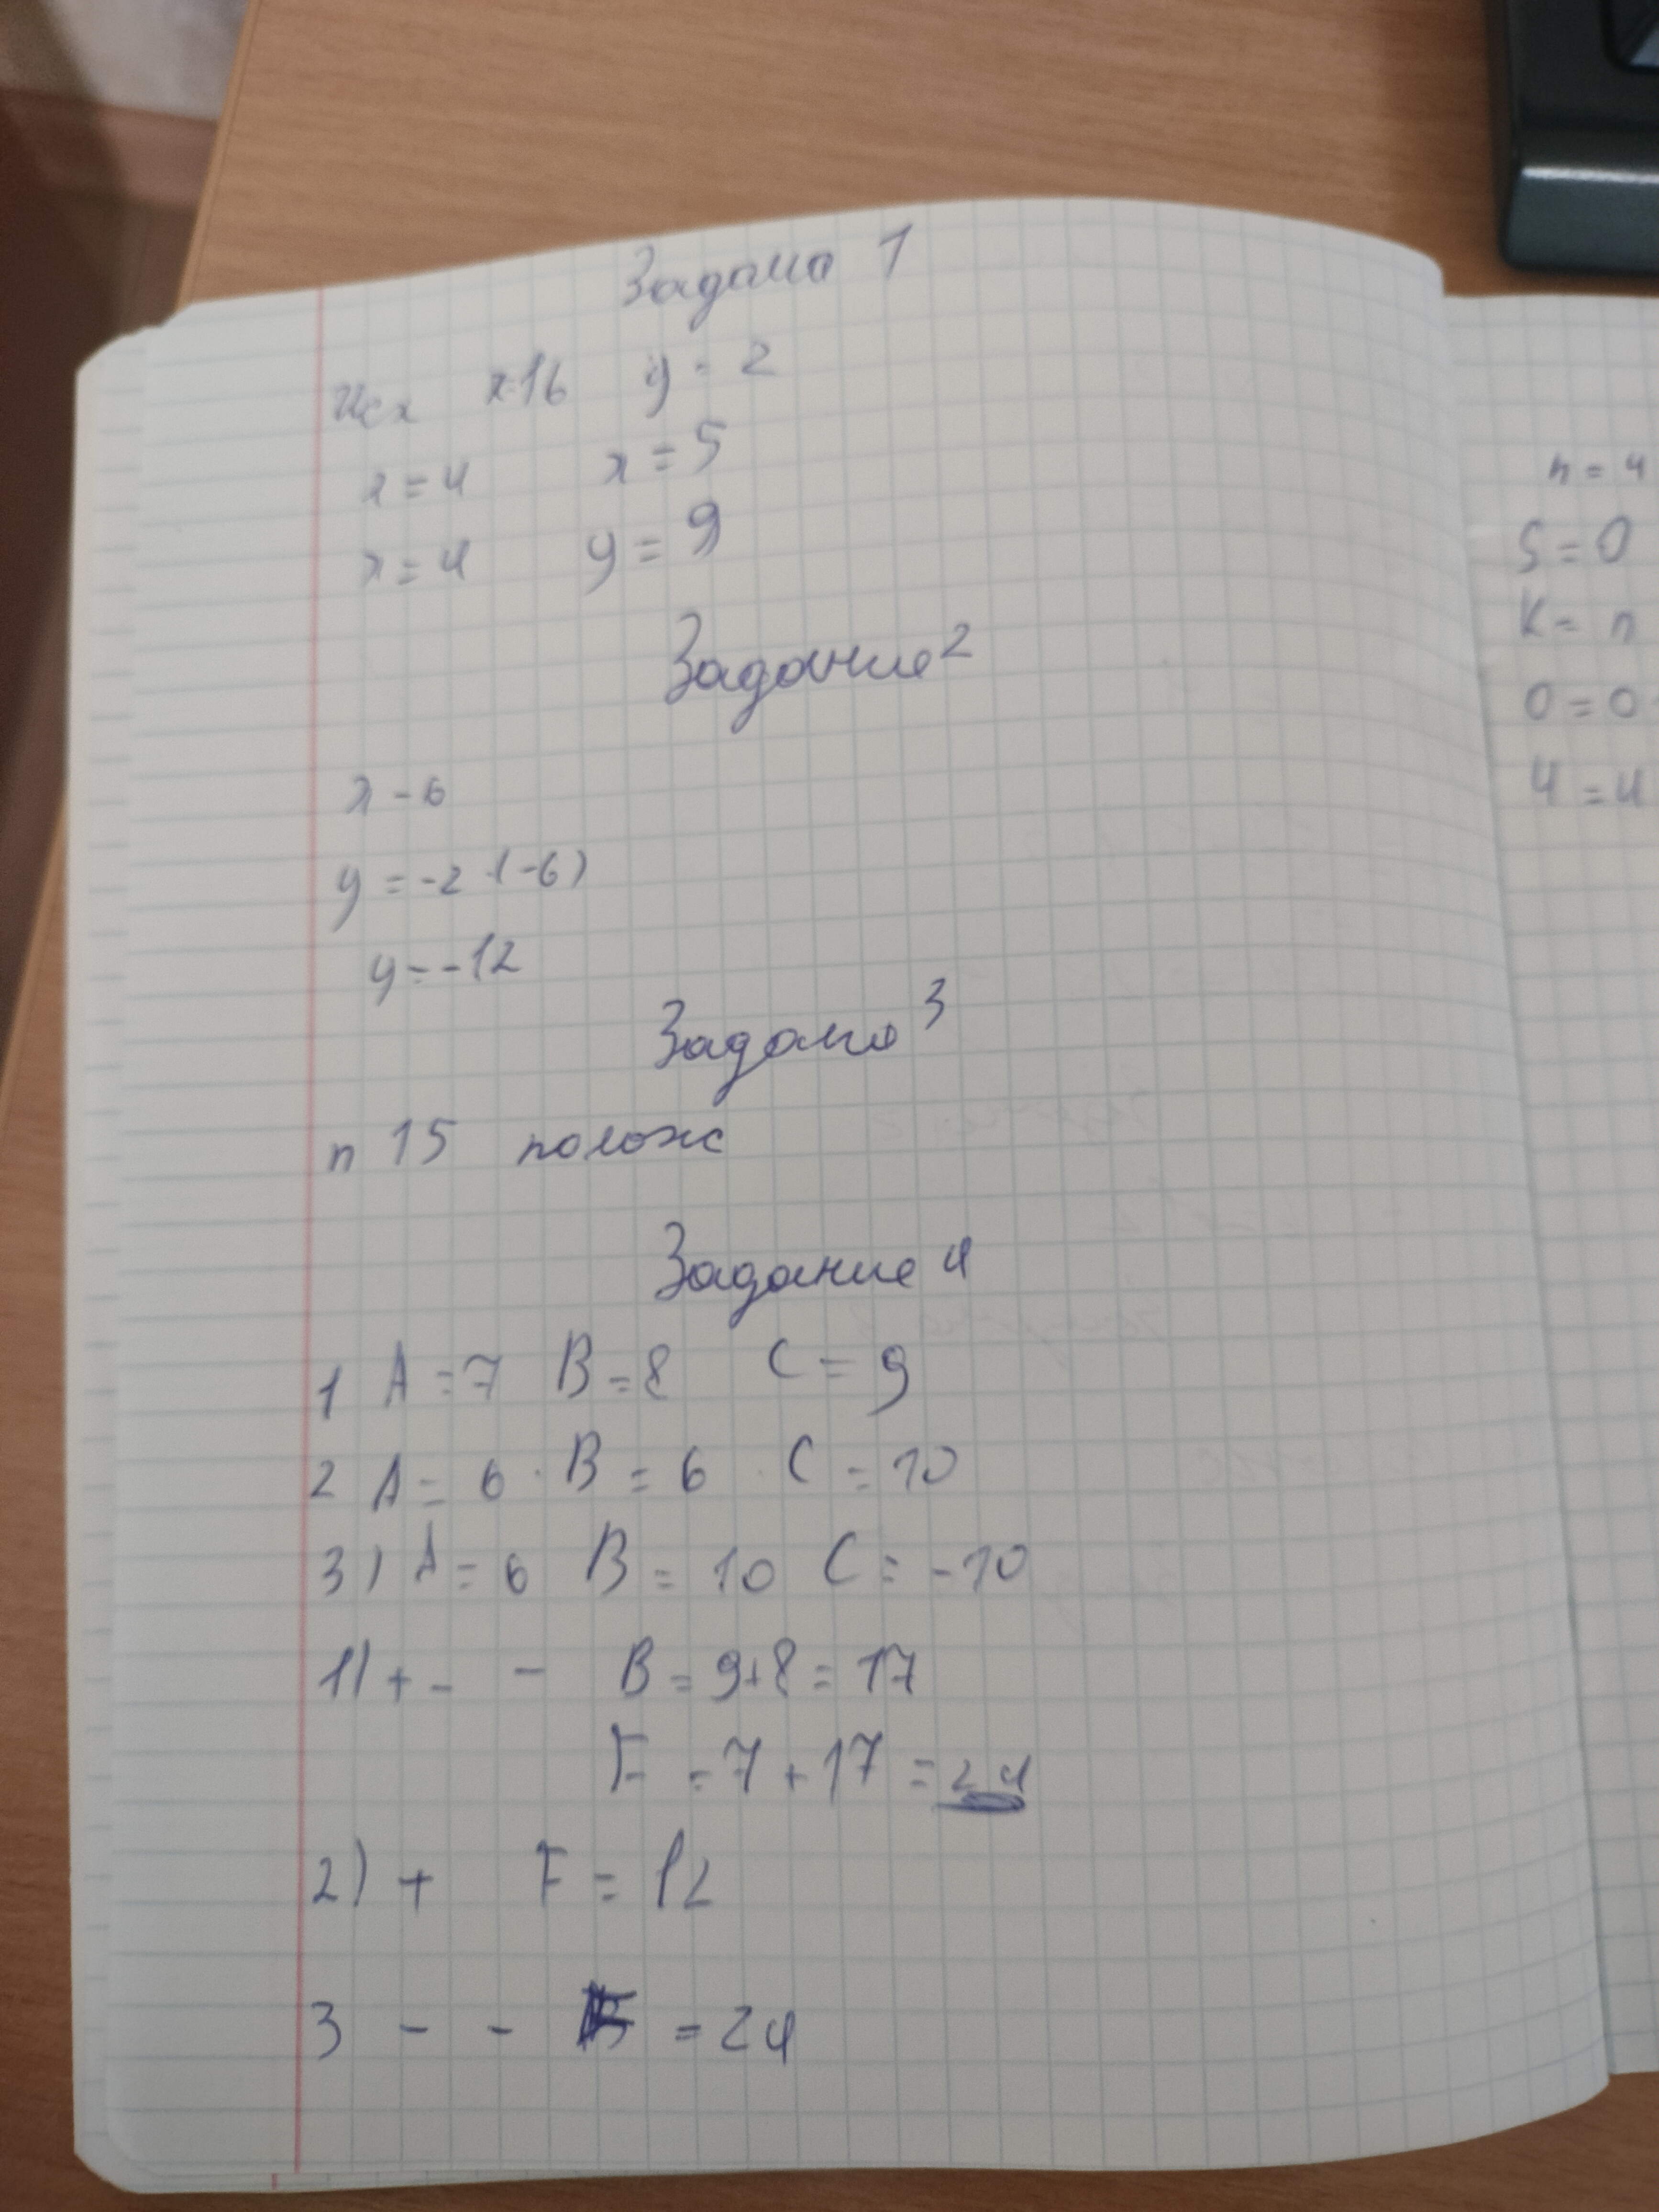 Задание 1
Исх x=16 y = 2
x = 4 x = 5
x = 4 y = 9
Задание 2
x - 6
y = -2 · (-6)
y = -12
Задание 3
п 15 полож
Задание 4
1 A = 7 B = 8 C = 9
2 A = 6 · B = 6 · C = 10
3) A = 6 B = 10 C = -10
1) + - - B = 9+8 = 17
F = 7 + 17 = 24
2) + F = 12
3 - - = 24
n = 4
S = 0
K = n
0 = 0
4 = 4